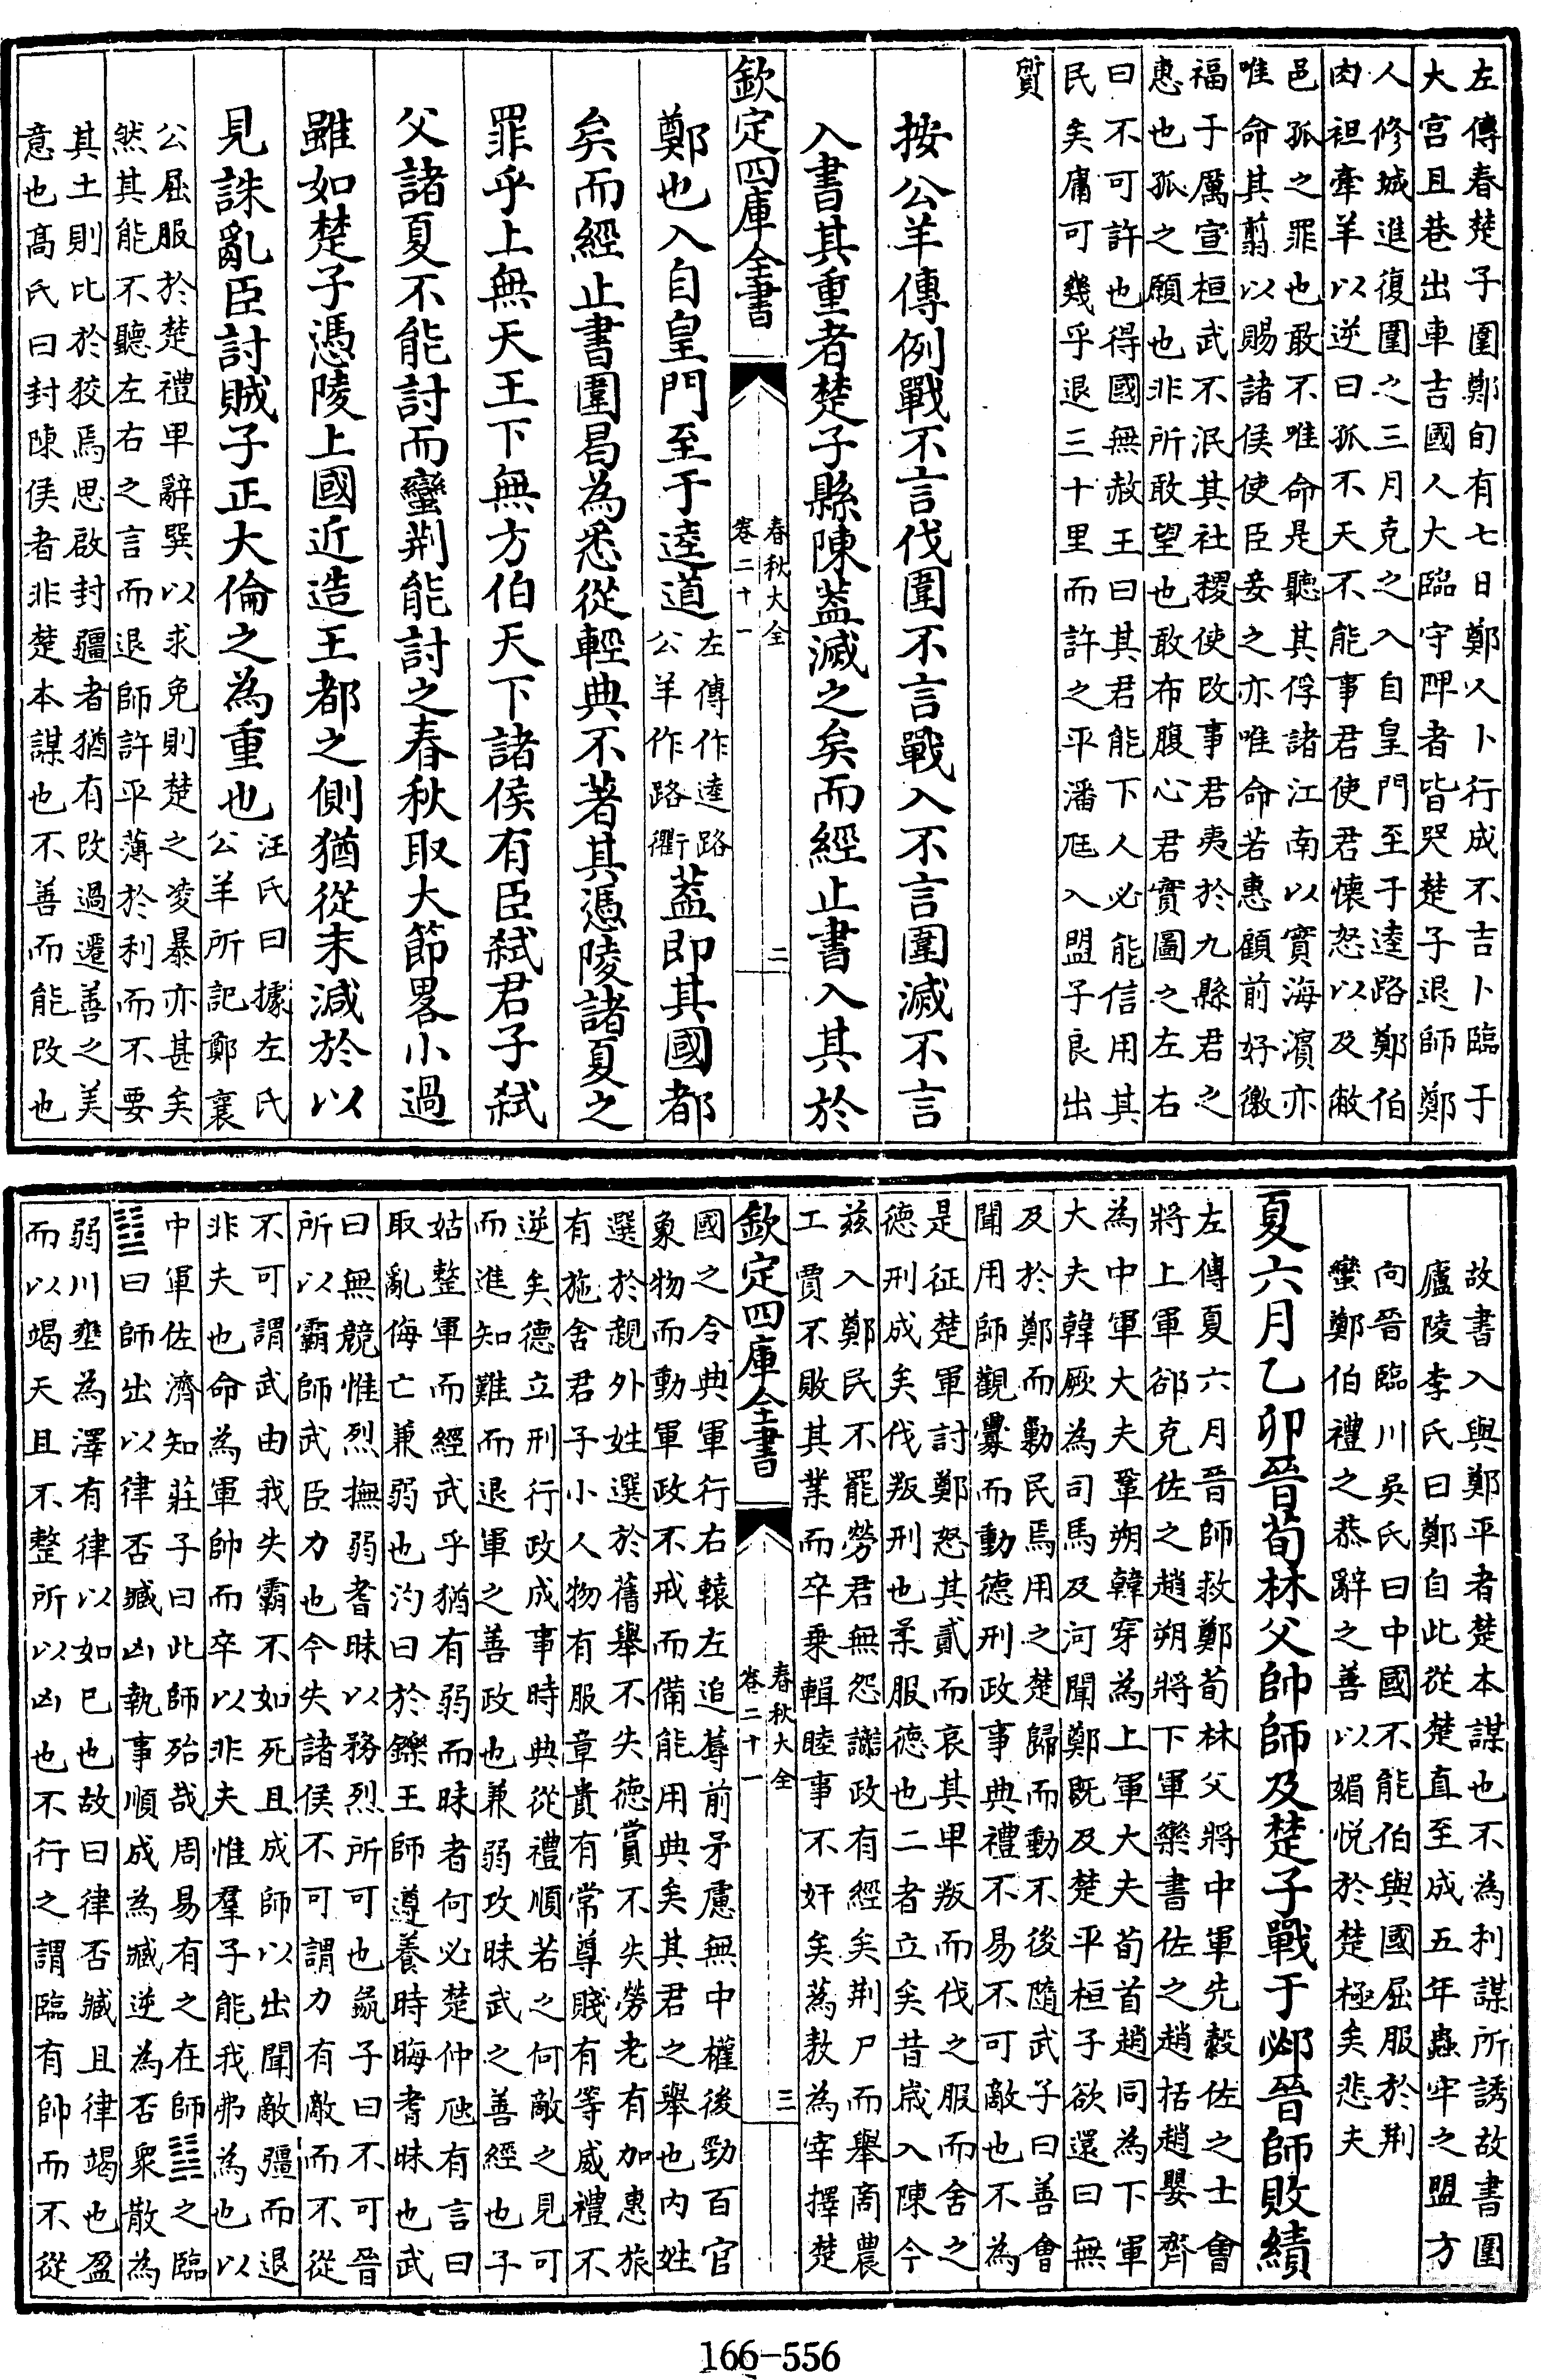 左傳春楚子圍鄭旬有七日鄭人卜行成不吉卜臨于
大宫且巷出車吉國人大臨守陴者皆哭楚子退師鄭
人修城進復圍之三月克之入自皇門至于逵路鄭伯
肉袒牽羊以逆曰孤不天不能事君使君懷怒以及敝
邑孤之罪也敢不唯命是聽其俘諸江南以實海濱亦
唯命其翦以賜諸侯使臣妾之亦唯命若惠顧前好徼
福于厲宣桓武不泯其社稷使改事君夷於九縣君之
惠也孤之願也非所敢望也敢布腹心君實圖之左右
曰不可許也得國無赦王曰其君能下人必能信用其
民矣庸可幾乎退三十里而許之平潘尫入盟子良出
質
按公羊傳例戰不言伐圍不言戰入不言圍滅不言
入書其重者楚子縣陳葢滅之矣而經止書入其於
欽定四庫全書
春秋大全
卷二十一
二
鄭也入自皇門至于逵道左傳作逵路
公羊作路衢葢即其國都
矣而經止書圍曷為悉從輕典不著其憑陵諸夏之
罪乎上無天王下無方伯天下諸侯有臣弑君子弑
父諸夏不能討而蠻荆能討之春秋取大節畧小過
雖如楚子憑陵上國近造王都之側猶從末減於以
見誅亂臣討賊子正大倫之為重也汪氏曰據左氏
公羊所記鄭襄
公屈服於楚禮甲辭巽以求免則楚之凌暴亦甚矣
然其能不聽左右之言而退師許平薄於利而不要
其土則比於狡焉思啟封疆者猶有改過遷善之美
意也髙氏曰封陳侯者非楚本謀也不善而能改也
故書入與鄭平者楚本謀也不為利謀所誘故書圍
廬陵李氏曰鄭自此從楚直至成五年蟲牢之盟方
向晉臨川吳氏曰中國不能伯與國屈服於荆
蠻鄭伯禮之恭辭之善以媚悦於楚極矣悲夫
夏六月乙卯晉荀林父帥師及楚子戰于邲晉師敗績
左傳夏六月晉師救鄭荀林父將中軍先縠佐之士會
將上軍郤克佐之趙朔將下軍欒書佐之趙括趙嬰齊
為中軍大夫鞏朔韓穿為上軍大夫荀首趙同為下軍
大夫韓厥為司馬及河聞鄭既及楚平桓子欲還曰無
及於鄭而勦民焉用之楚歸而動不後隨武子曰善會
聞用師觀釁而動德刑政事典禮不易不可敵也不為
是征楚軍討鄭怒其貳而哀其甲叛而伐之服而舍之
德刑成矣伐叛刑也柔服德也二者立矣昔歲入陳今
兹入鄭民不罷勞君無怨讟政有經矣荆尸而舉商農
工賈不敗其業而卒乗輯睦事不奸矣蒍敖為宰擇楚
欽定四庫全書
春秋大全
卷二十一
三
國之令典軍行右轅左追蓐前矛慮無中權後勁百官
象物而動軍政不戒而備能用典矣其君之舉也内姓
選於親外姓選於舊舉不失德賞不失勞老有加惠旅
有施舍君子小人物有服章貴有常尊賤有等威禮不
逆矣德立刑行政成事時典從禮順若之何敵之見可
而進知難而退軍之善政也兼弱攻昧武之善經也子
姑整軍而經武乎猶有弱而昧者何必楚仲虺有言曰
取亂侮亡兼弱也汋曰於鑠王師遵養時晦耆昧也武
曰無競惟烈撫弱耆昧以務烈所可也彘子曰不可晉
所以霸師武臣力也今失諸侯不可謂力有敵而不從
不可謂武由我失霸不如死且成師以出聞敵彊而退
非夫也命為軍帥而卒以非夫惟羣子能我弗為也以
中軍佐濟知莊子曰此師殆哉周易有之在師䷆之臨
䷒曰師出以律否臧凶執事順成為臧逆為否衆散為
弱川壅為澤有律以如已也故曰律否臧且律竭也盈
而以竭夭且不整所以凶也不行之謂臨有帥而不從
166-556